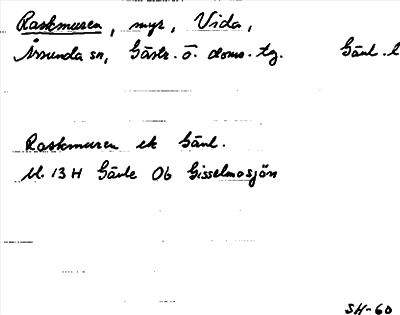 Raskmuren, myr, Vida,
Årsunda sn, Gästr. ö. doms. tg. Gävl. l
Raskmuren ek Gävl.
U. 13 H Gävle Ob Gisselmosjön
SH-60